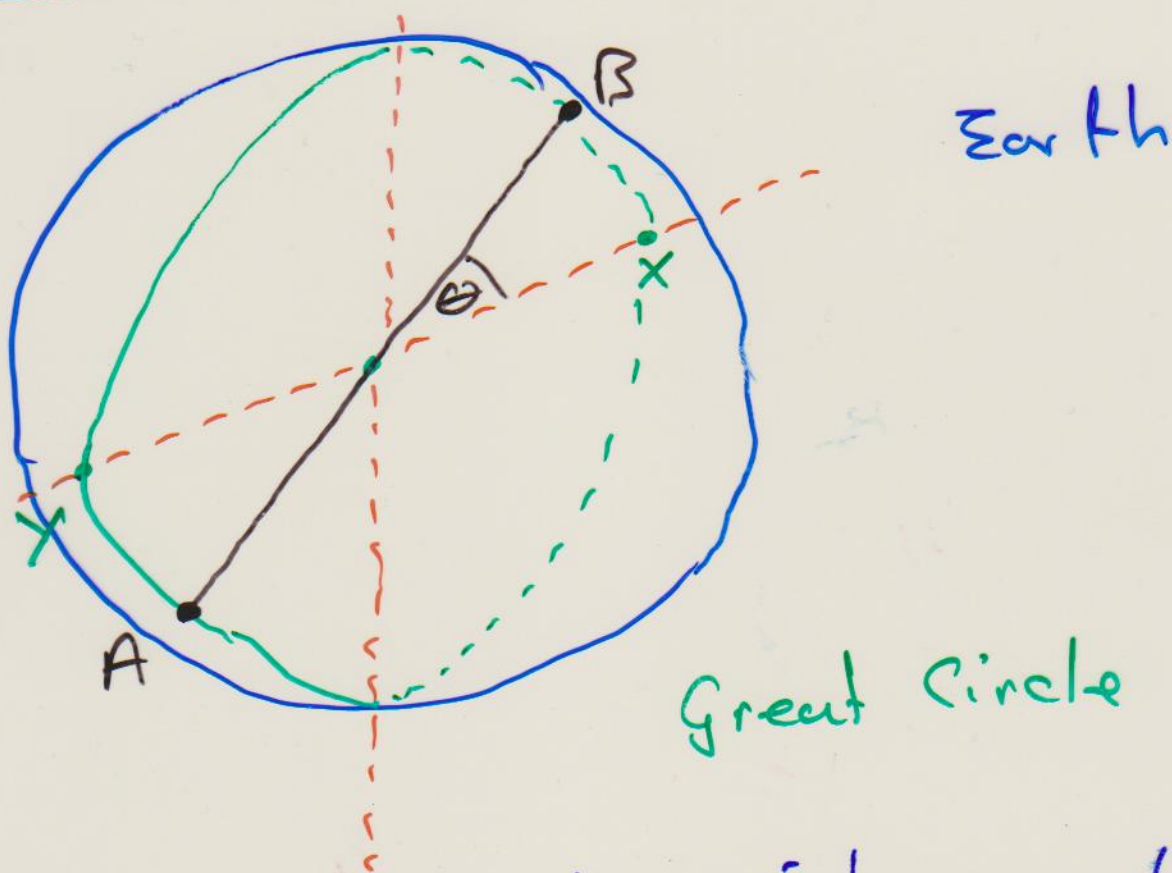 B
Earth
X
θ
Y
A
Great Circle